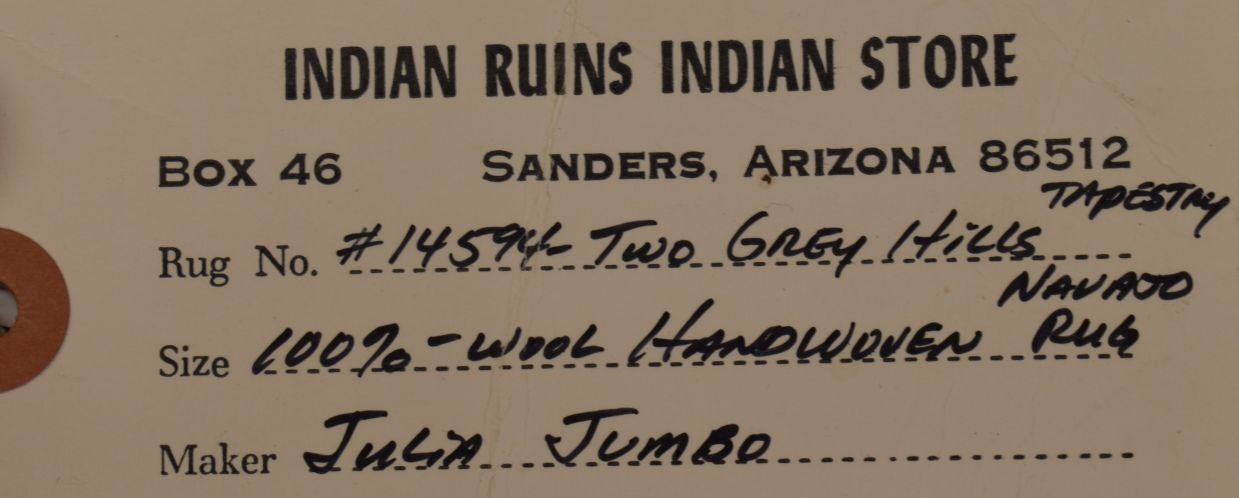 INDIAN RUINS INDIAN STORE
BOX 46 SANDERS, ARIZONA 86512
Rug No. #14594- TWO GREY HILLS TAPESTRY
Size 100%-WOOL HANDWOVEN NAVAJO RUG
Maker JULIA JUMBO